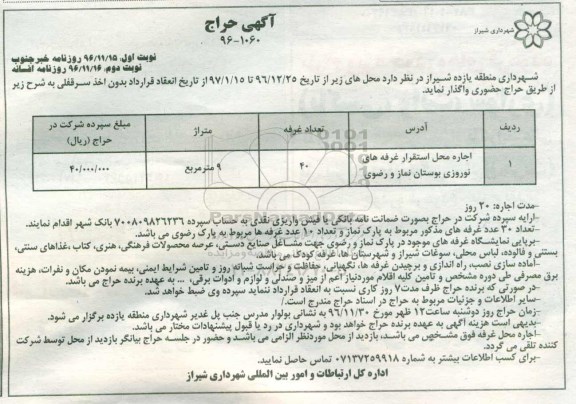 آگهی حراج
۹۶-۱۰۶۰
شهرداری شیراز
نوبت اول: ۹۶/۱۱/۱۵ روزنامه خبرجنوب
نوبت دوم: ۹۶/۱۱/۱۶ روزنامه افسانه
شهرداری منطقه یازده شیراز در نظر دارد محل های زیر از تاریخ ۹۶/۱۲/۲۵ تا ۹۷/۱/۱۵ از تاریخ انعقاد قرارداد بدون اخذ سرقفلی به شرح زیر
از طریق حراج حضوری واگذار نماید.
ردیف آدرس تعداد غرفه متراژ مبلغ سپرده شرکت در حراج (ریال)
۱ اجاره محل استقرار غرفه های نوروزی بوستان نماز و رضوی ۴۰ ۹ مترمربع ۴۰/۰۰۰/۰۰۰
-مدت اجاره: ۳۰ روز
-ارایه سپرده شرکت در حراج بصورت ضمانت نامه بانکی یا فیش واریزی نقدی به حساب سپرده ۷۰۰۸۰۹۸۲۶۲۳۶ بانک شهر اقدام نمایند.
-تعداد ۳۰ عدد غرفه های مذکور مربوط به پارک نماز و تعداد ۱۰ عدد غرفه ها مربوط به پارک رضوی می باشد.
-برپایی نمایشگاه غرفه های موجود در پارک نماز و رضوی جهت مشاغل صنایع دستی، عرصه محصولات فرهنگی، هنری، کتاب ،غذاهای سنتی،
بستنی و فالوده، لباس محلی، سوغات شیراز و شهرستان ها، غرفه کودک می باشد.
-آماده سازی نصب، راه اندازی و برچیدن غرفه ها، نگهبانی، حفاظت و حراست شبانه روز و تامین شرایط ایمنی، بیمه نمودن مکان و نفرات، هزینه
برق مصرفی طی دوره مشخص و تامین کلیه اقلام موردنیاز اعم از میز و صندلی و لوازم و ادوات برقی، ... به عهده برنده حراج می باشد.
-در صورتی که برنده حراج ظرف مدت ۷ روز کاری نسبت به انعقاد قرارداد ننماید سپرده وی ضبط خواهد شد.
-سایر اطلاعات و جزئیات مربوط به حراج در اسناد حراج مندرج است./
-زمان حراج روز دوشنبه ساعت ۱۲ ظهر مورخ ۹۶/۱۱/۳۰ به نشانی بولوار مدرس جنب پل غدیر شهرداری منطقه یازده برگزار می شود.
-بدیهی است هزینه آگهی به عهده برنده حراج خواهد بود و شهرداری در رد یا قبول پیشنهادات مختار می باشد.
-اجاره محل غرفه فوق مشخص می باشد، بازدید از محل موردنظر الزامی می باشد و حضور در جلسه حراج بیانگر بازدید از محل توسط شرکت
کننده تلقی می گردد.
-برای کسب اطلاعات بیشتر به شماره ۰۷۱۳۷۲۵۹۹۱۸ تماس حاصل نمایید.
اداره کل ارتباطات و امور بین المللی شهرداری شیراز